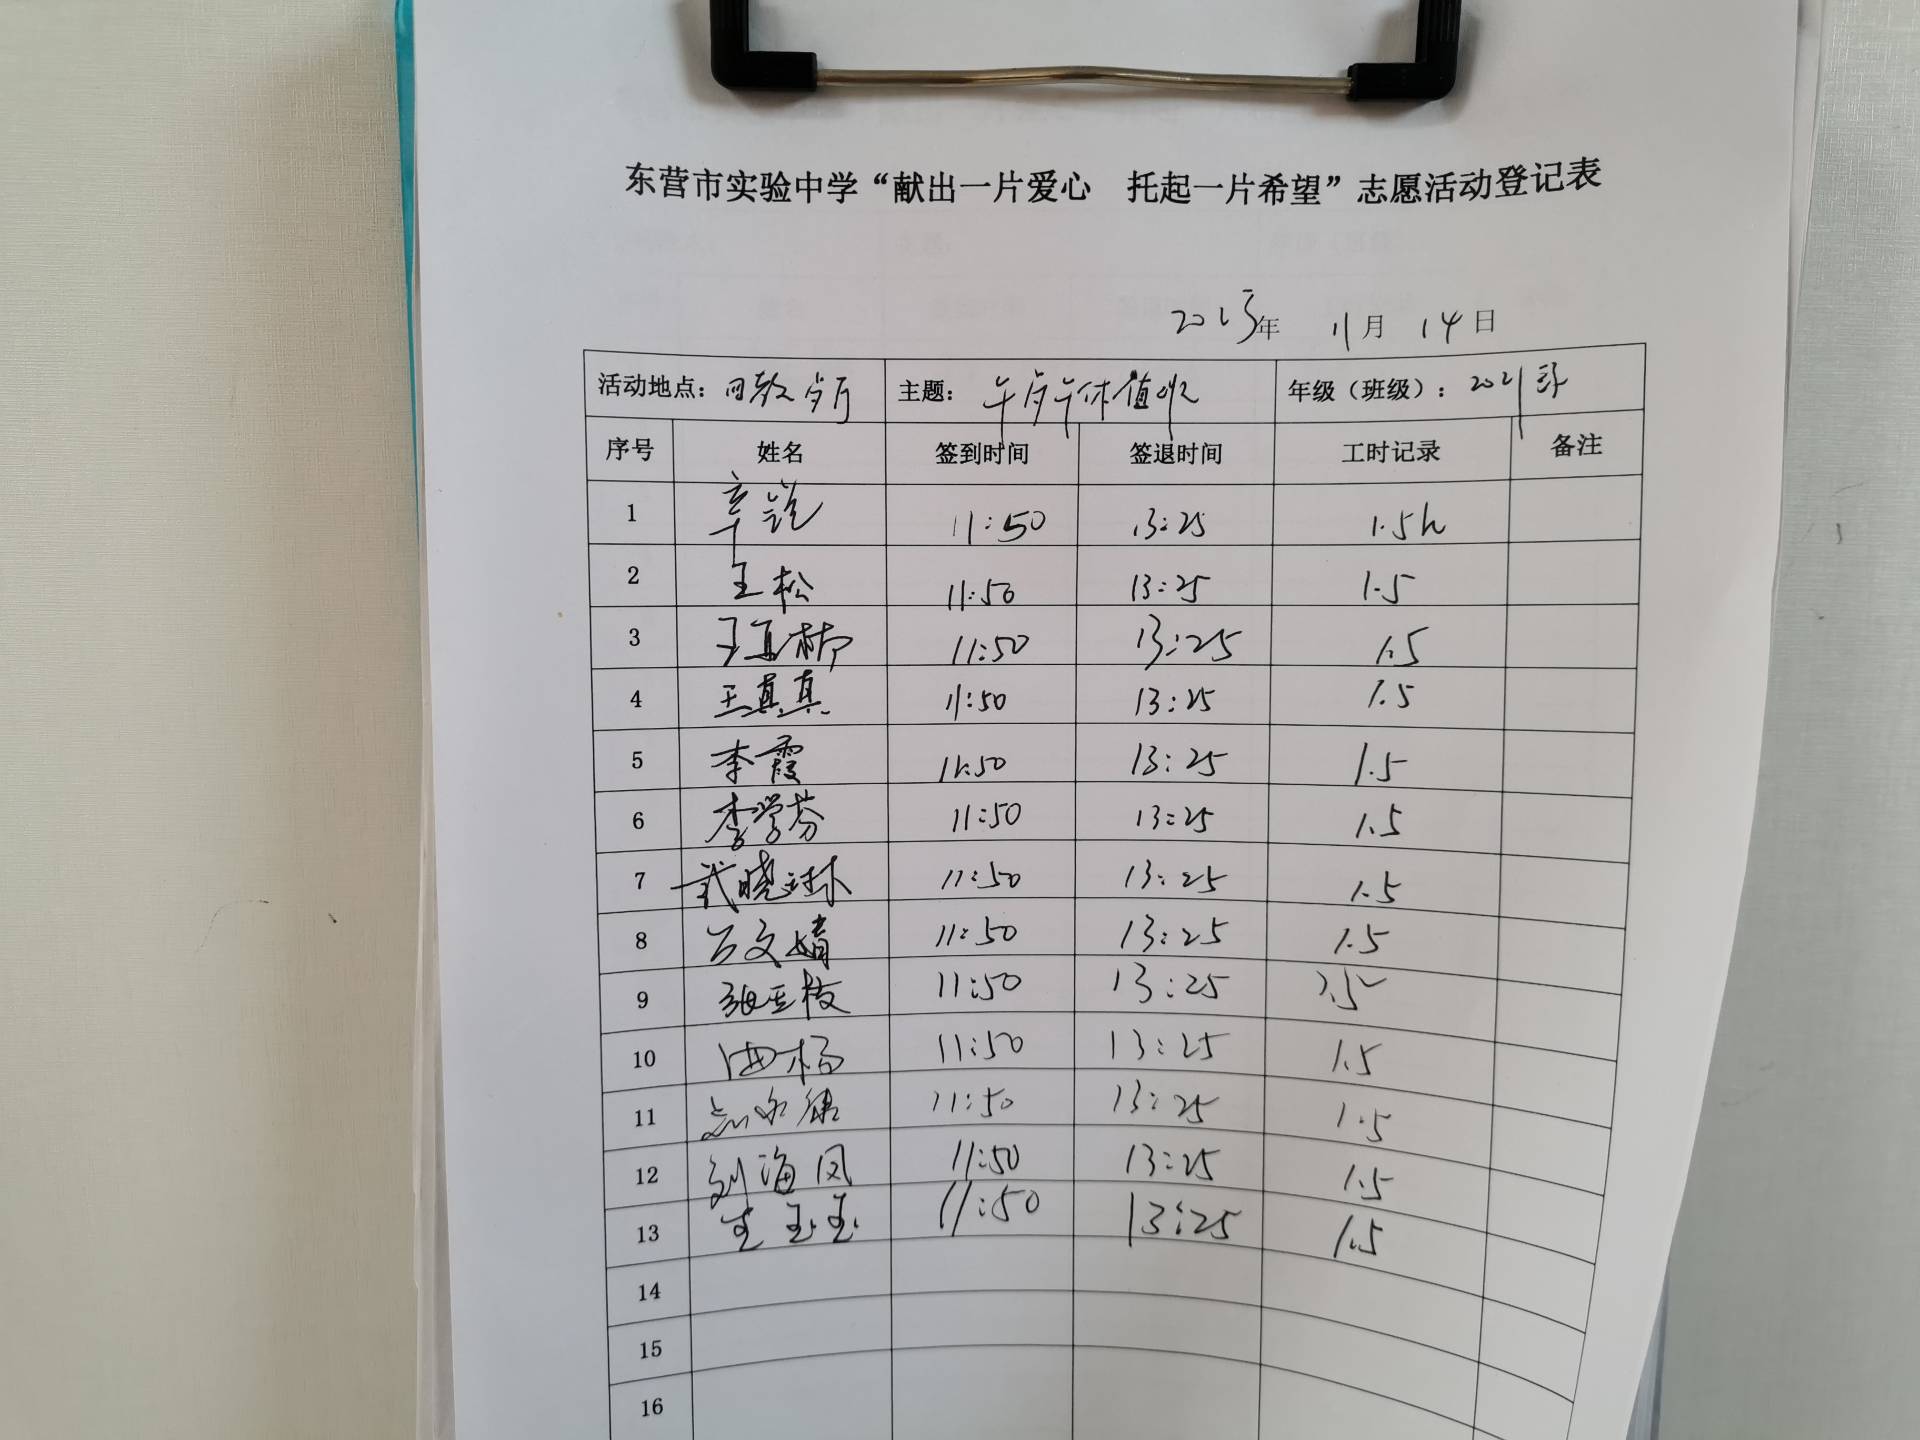 东营市实验中学“献出一片爱心 托起一片希望”志愿活动登记表
2023年 11月 14日
活动地点： 主题： 午休值班 年级（班级）：2021级
序号 姓名 签到时间 签退时间 工时记录 备注
1 辛锐 11:50 13:25 1.5h
2 王松 11:50 13:25 1.5
3 11:50 13:25 1.5
4 王真真 11:50 13:25 1.5
5 李霞 11:50 13:25 1.5
6 李学芬 11:50 13:25 1.5
7 武晓琳 11:50 13:25 1.5
8 文婧 11:50 13:25 1.5
9 张玉枝 11:50 13:25 1.5
10 杨 11:50 13:25 1.5
11 11:50 13:25 1.5
12 刘海凤 11:50 13:25 1.5
13 玉玉 11:50 13:25 1.5
14
15
16